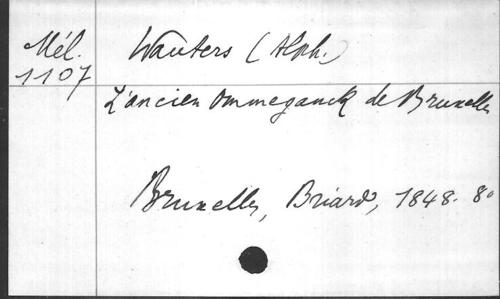 Mél.
1107
Wauters (Alph.)
L'ancien Ommeganck de Bruxelles
Bruxelles, Briard, 1848. 8°